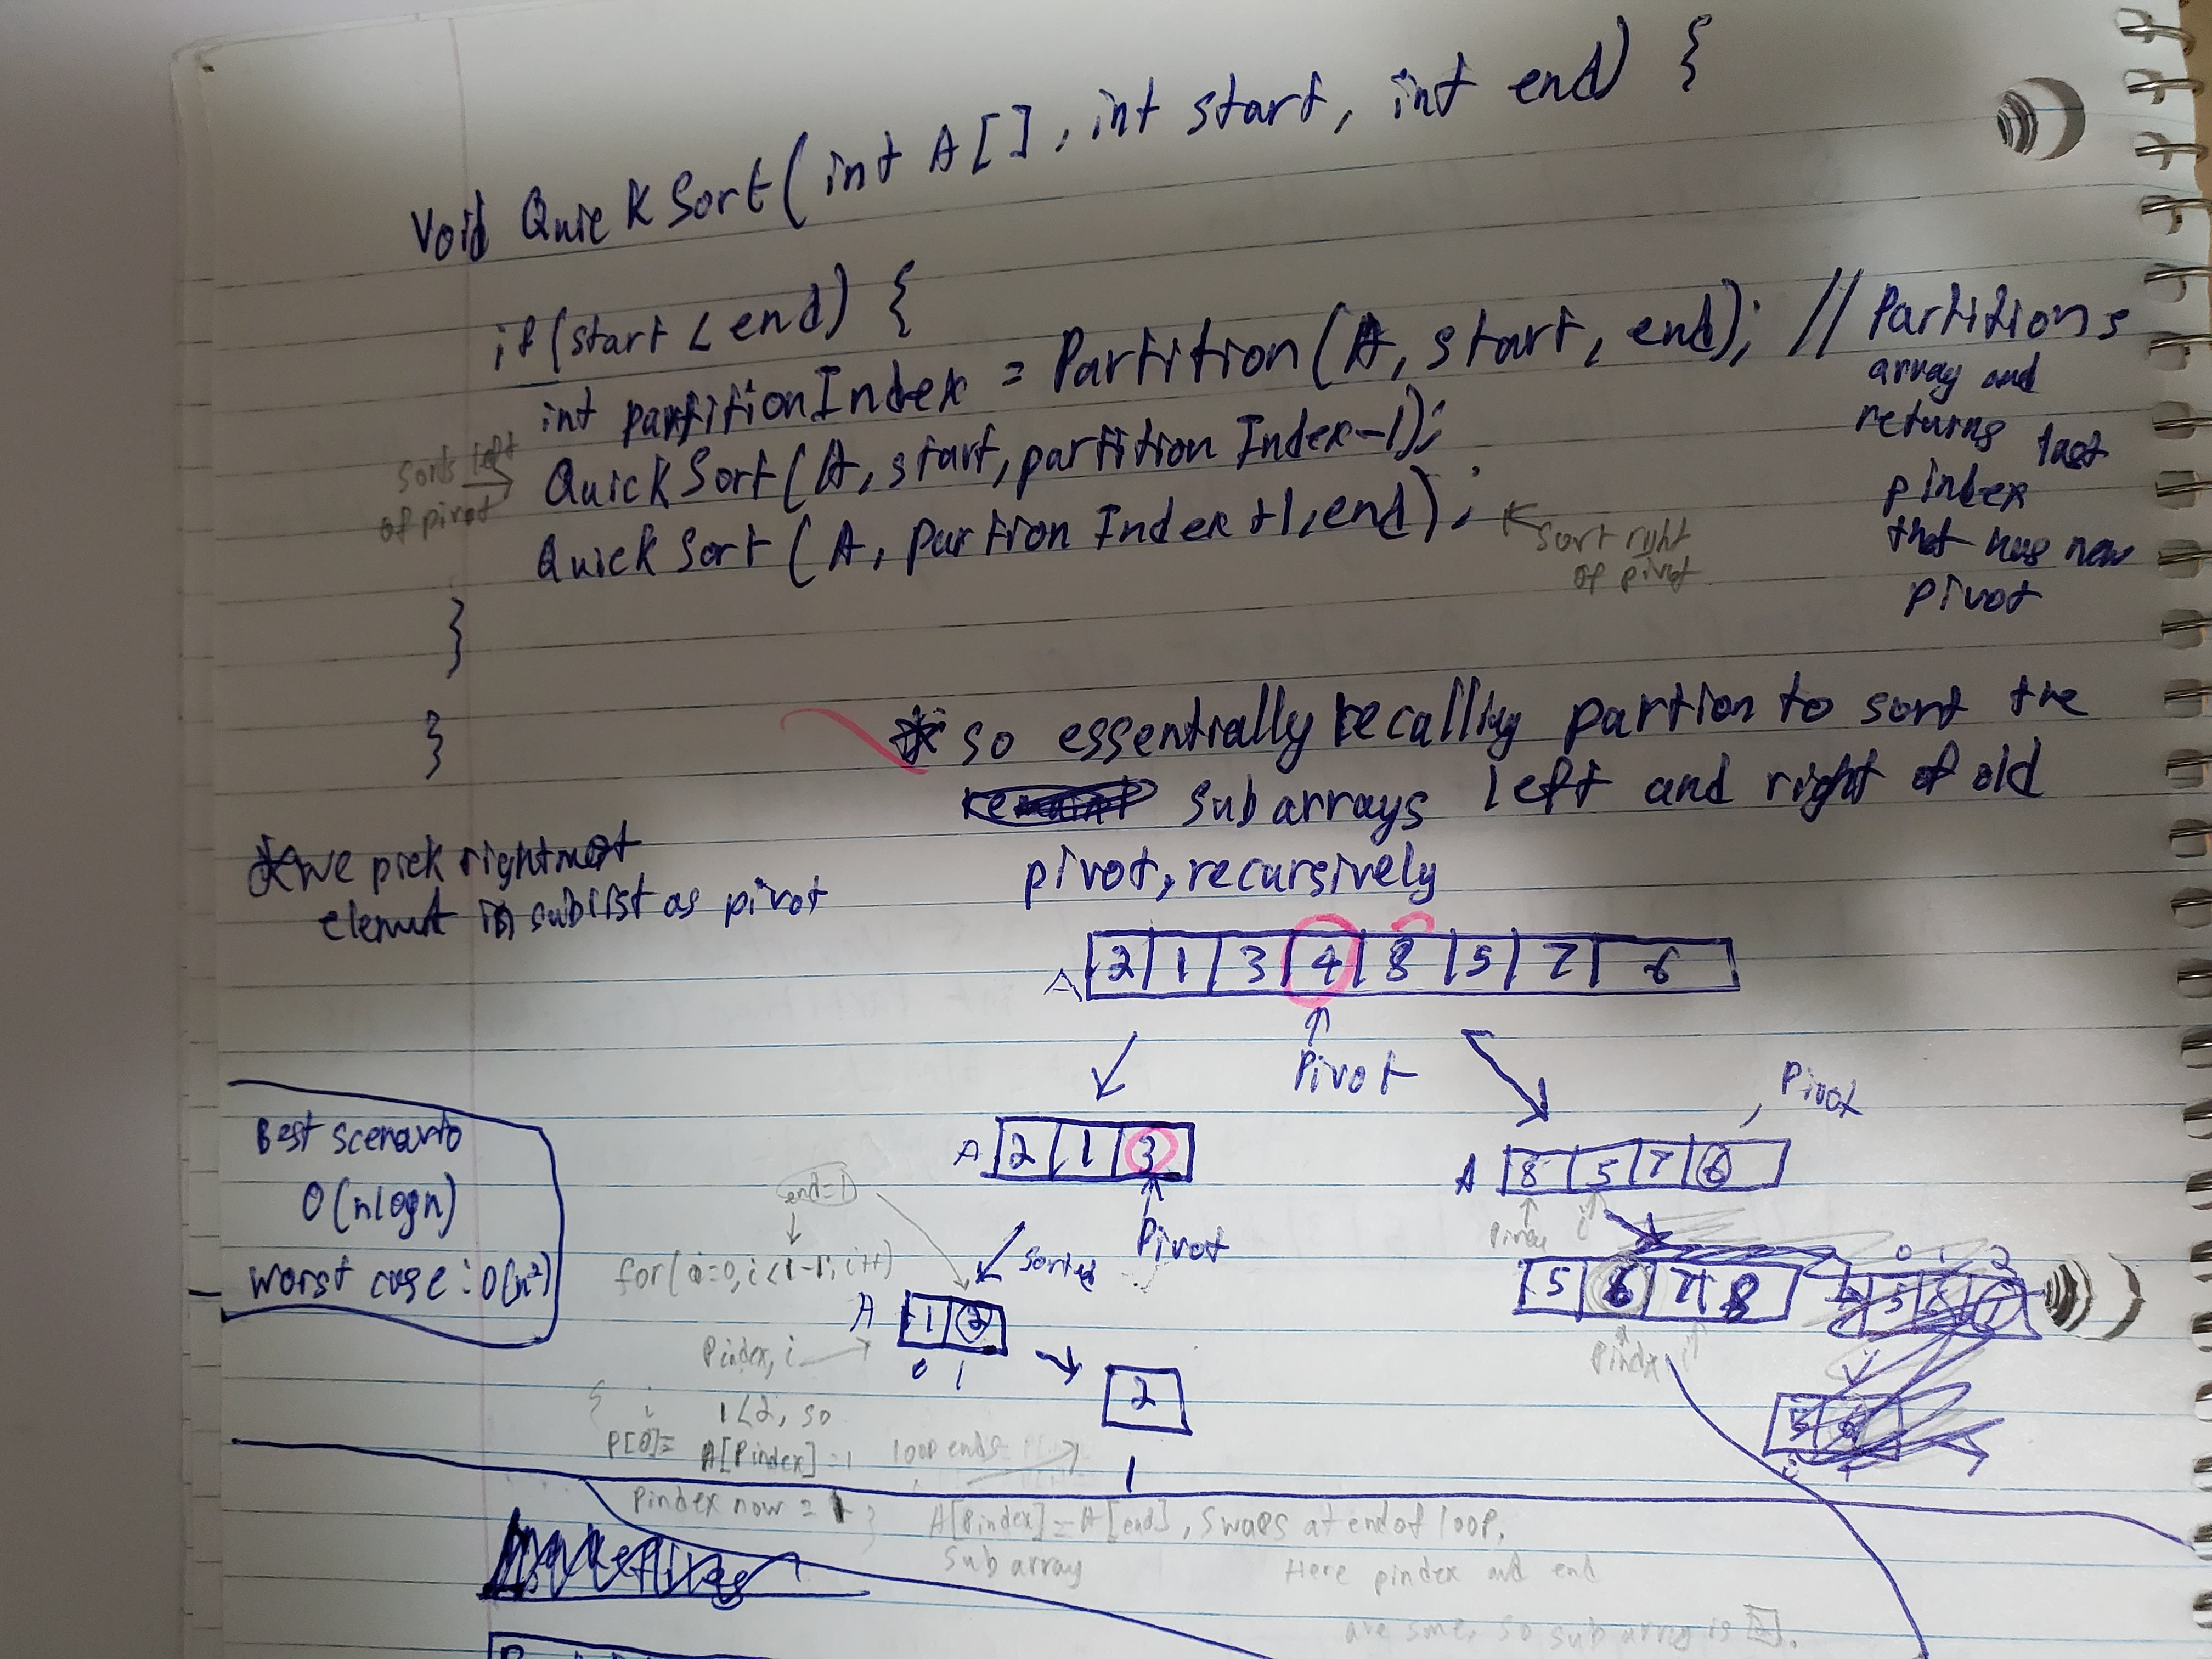 void QuickSort(int A[], int start, int end) {
if(start < end) {
int partitionIndex = Partition(A, start, end); // Partitions
array and
returns last
pindex
that has new
pivot
sorts left
of pivot
QuickSort(A, start, partition Index-1);
QuickSort(A, partion Index+1, end);
sort right
of pivot
}
}
* so essentially recalling partion to sort the
subarrays left and right of old
pivot, recursively
*we pick rightmost
element in sublist as pivot
A 2 1 3 4 8 5 7 6
Pivot
Pivot
A 2 1 3
Pivot
A 8 5 7 6
Pindex i
Best scenario
O(nlogn)
worst case: O(n²)
end=1
for(i=0, i<1-1; i++)
sorted
A 1 2
0 1
Pindex, i
5 6 7 8
Pindex i
0 1 2
2
1
{ i 1<2, so
P[0]= A[Pindex]=1 loop ends
pindex now = 1 }
A[Pindex]=A[end], swaps at end of loop,
sub array
Here pindex and end
are same, so sub array is [2].